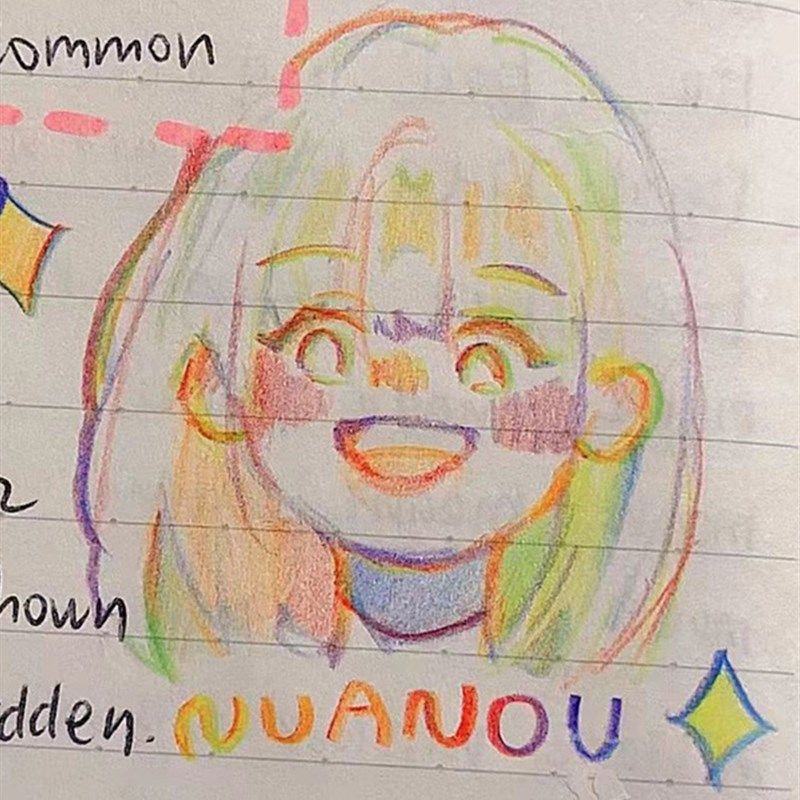 common
nown
dden.
NUANOU